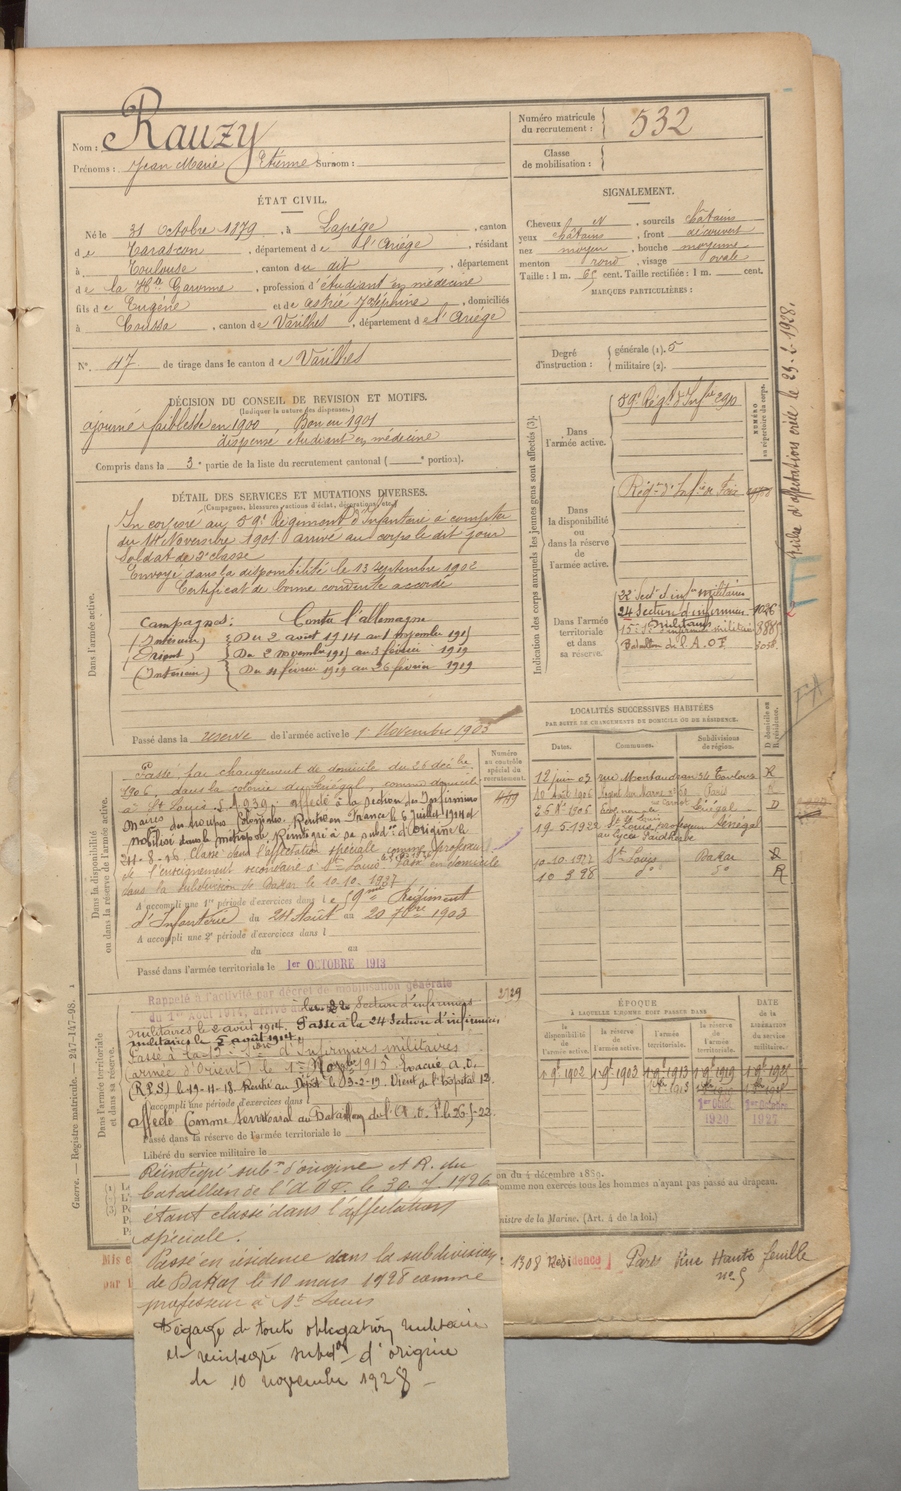 Nom : Rauzy
Prénoms : Jean Marie Etienne Surnom :
Numéro matricule
du recrutement : 532
Classe
de mobilisation :
ÉTAT CIVIL.
Né le 31 Octobre 1879, à Lapège, canton
de Tarascon, département de l'Ariége, résidant
à Toulouse, canton du dit, département
de la Hte Garonne, profession d'étudiant en médecine
fils de Eugène et de Astrié Joséphine, domiciliés
à Coussa, canton de Varilhes, département de l'Ariége
N° 47 de tirage dans le canton de Varilhes
SIGNALEMENT.
Cheveux N, sourcils châtains
yeux châtains, front découvert
nez moyen, bouche moyenne
menton rond, visage ovale
Taille : 1 m. 65 cent. Taille rectifiée : 1 m. cent.
MARQUES PARTICULIÈRES :
Degré
d'instruction :
générale (1). 5
militaire (2).
DÉCISION DU CONSEIL DE REVISION ET MOTIFS.
(Indiquer la nature des dispenses.)
ajourné faiblesse en 1900, Bon en 1901
dispensé étudiant en médecine
Compris dans la 3e partie de la liste du recrutement cantonal ( e portion).
DÉTAIL DES SERVICES ET MUTATIONS DIVERSES.
(Campagnes, blessures, actions d'éclat, décorations, etc.)
Dans l'armée active.
Incorporé au 59e Régiment d'Infanterie à compter
du 14 Novembre 1901 arrivé au corps le dit jour
Soldat de 2e classe
Envoyé dans la disponibilité le 13 Septembre 1902
Certificat de bonne conduite accordé
Campagnes : Contre l'allemagne
(Intérieur) Du 2 août 1914 au 1 novembre 1915
(Orient) Du 2 novembre 1915 au 3 février 1919
(Intérieur) Du 4 février 1919 au 26 février 1919
Passé dans la réserve de l'armée active le 1er Novembre 1903
Indication des corps auxquels les jeunes gens sont affectés (3).
NUMÉRO
au répertoire du corps.
Dans
l'armée active.
59e Régt d'Infie
Dans
la disponibilité
ou
dans la réserve
de
l'armée active.
Régt d'Infie de Foix
Dans l'armée
territoriale
et dans
sa réserve.
24 Section d'infirmiers
militaires
Bataillon de l'A.O.F.
LOCALITÉS SUCCESSIVES HABITÉES
PAR SUITE DE CHANGEMENTS DE DOMICILE OU DE RÉSIDENCE.
Dates. Communes. Subdivisions
de région.
D domicile ou
R résidence.
12 juin 03 rue Montaudran 34 Toulouse R
10 Août 1906 Paris R
26 Dbre 1906 Sénégal D
19.5.1922 St Louis professeur Sénégal
au Lycée Faidherbe
10-10-1927 St Louis Dakar
10.3.28 do do R
Dans la disponibilité
ou dans la réserve de l'armée active.
Numéro
au contrôle
spécial du
recrutement.
Passé par changement de domicile du 26 décbre
1906, dans la colonie du Sénégal, comme domicilié
à St Louis affecté à la section des Infirmiers
Maires des troupes Coloniales. Rentré en France le 6 Juillet 1914 et
mobilisé dans la métropole. Réintégré à sa subdon d'origine le
Classé dans l'affectation spéciale comme professeur
de l'enseignement secondaire à St Louis. Passé en domicile
dans la subdivision de Dakar le 10-10-1927
A accompli une 1re période d'exercices dans le 59me Régiment
d'Infanterie du 24 Août au 20 7bre 1903
A accompli une 2e période d'exercices dans l
du au
Passé dans l'armée territoriale le 1er OCTOBRE 1913
Dans l'armée territoriale
et dans sa réserve.
Rappelé à l'activité par décret de mobilisation générale
du 1er Août 1914, arrivé à la 22 Section d'infirmiers
militaires le 2 août 1914. Passé à la 24 Section d'infirmiers
militaires le 5 août 1914
Passé à la 15e Son d'Infirmiers militaires
(armée d'Orient) le 1er Novbre 1915 Evacué A.O.
le 19-11-18. Rentré au Dépôt le 13-2-19. Vient de l'hôpital 12.
A accompli une période d'exercices dans l
affecté Comme territorial au Bataillon de l'A.O.F. le
Passé dans la réserve de l'armée territoriale le
Libéré du service militaire le
2729
ÉPOQUE
À LAQUELLE L'HOMME DOIT PASSER DANS
la
disponibilité
de
l'armée active.
la réserve
de
l'armée active.
l'armée
territoriale.
la réserve
de
l'armée
territoriale.
DATE
DE LA
LIBÉRATION
du service
militaire.
1 9bre 1902 1 9bre 1903
1920 1927
Réintégré subon d'origine et R. du
bataillon de l'A.O.F. le 30.7.1926
étant classé dans l'affectation
spéciale.
Passé en résidence dans la subdivision
de Dakar le 10 mars 1928 comme
professeur à St Louis
Dégagé de toute obligation militaire
et réintégré subdon d'origine
le 10 novembre 1928
on du 4 décembre 1889.
comme non exercés tous les hommes n'ayant pas passé au drapeau.
nistre de la Marine. (Art. 4 de la loi.)
1308 Résidence Paris Rue Hautefeuille
n° 5
Guerre. — Registre matricule. — 247-147-98.
fiche d'affectation créée le